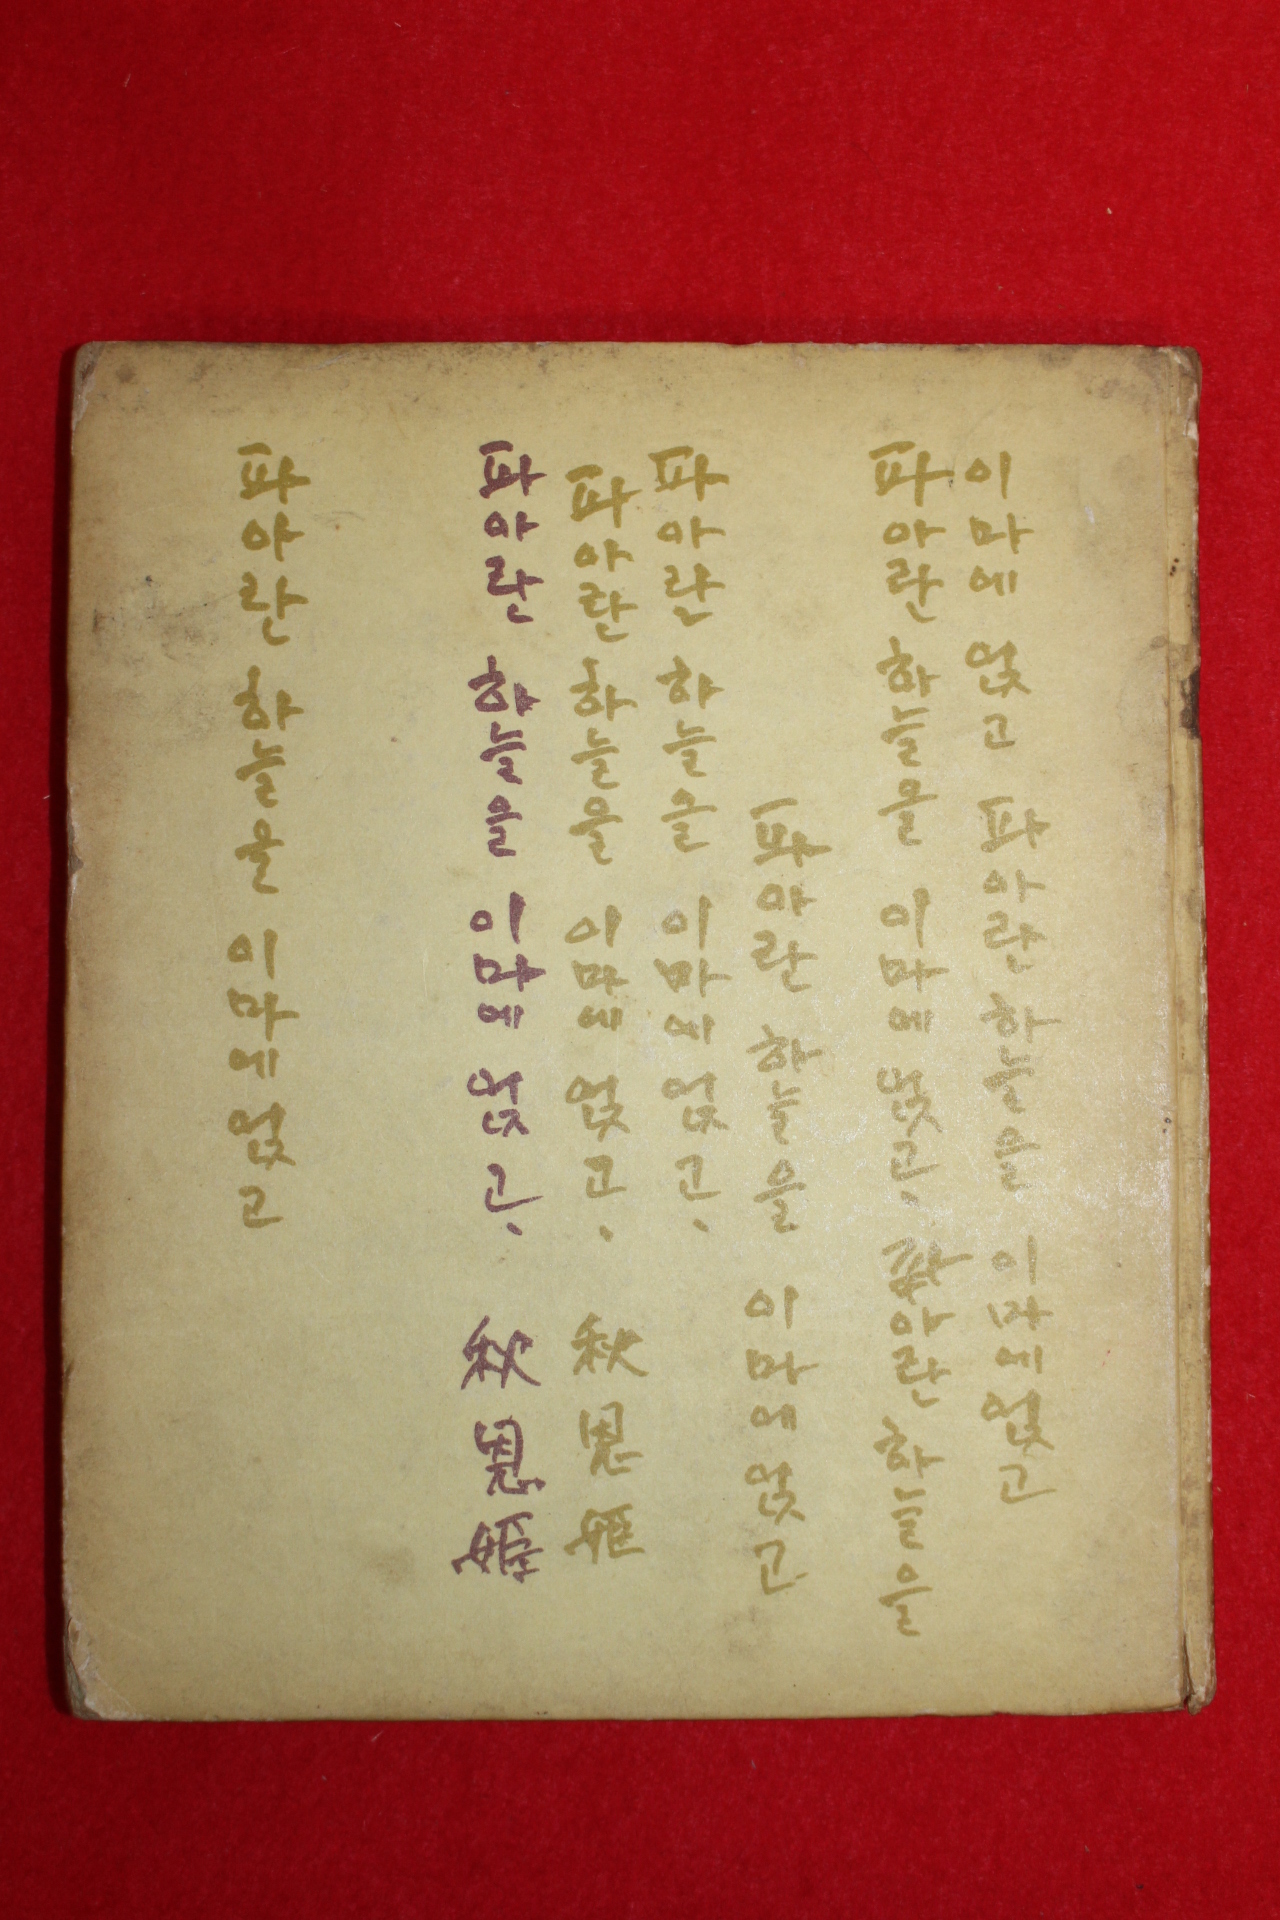 이마에 얹고 파아란 하늘을 이마에 얹고
파아란 하늘을 이마에 얹고、 파아란 하늘을
파아란 하늘을 이마에 얹고
파아란 하늘을 이마에 얹고、
파아란 하늘을 이마에 얹고、 秋恩姬
파아란 하늘을 이마에 얹고、 秋恩姬
파아란 하늘을 이마에 얹고